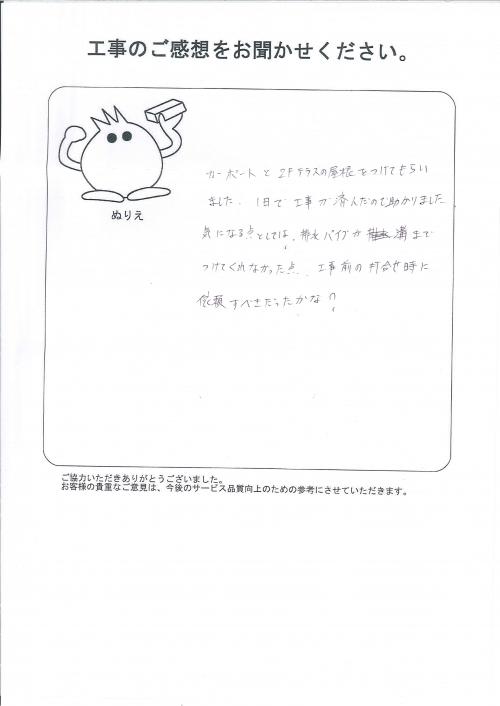 工事のご感想をお聞かせください。
ぬりえ
カーポートと2Fテラスの屋根をつけてもらい
ました。1日で工事が済んだので助かりました
気になる点としては、排水パイプが 溝まで
つけてくれなかった点、工事前の打合せ時に
依頼すべきだったかな?
ご協力いただきありがとうございました。
お客様の貴重なご意見は、今後のサービス品質向上のための参考にさせていただきます。